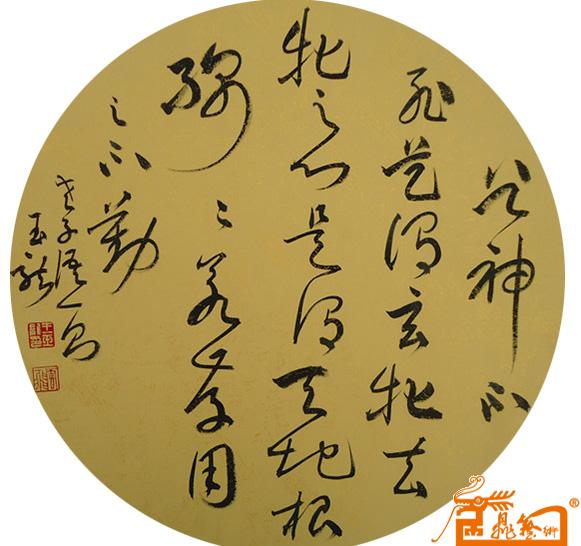 谷神不
死是谓玄牝玄
牝之门是谓天地根
绵〻若存用
之不勤
老子语一句
玉龙
鼎藝術®